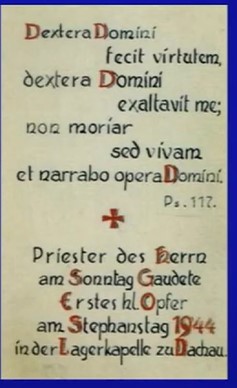 Dextera Domini
fecit virtutem,
dextera Domini
exaltavit me;
non moriar
sed vivam
et narrabo opera Domini.
Ps. 117.
Priester des Herrn
am Sonntag Gaudete
Erstes hl. Opfer
am Stephanstag 1944
in der Lagerkapelle zu Dachau.